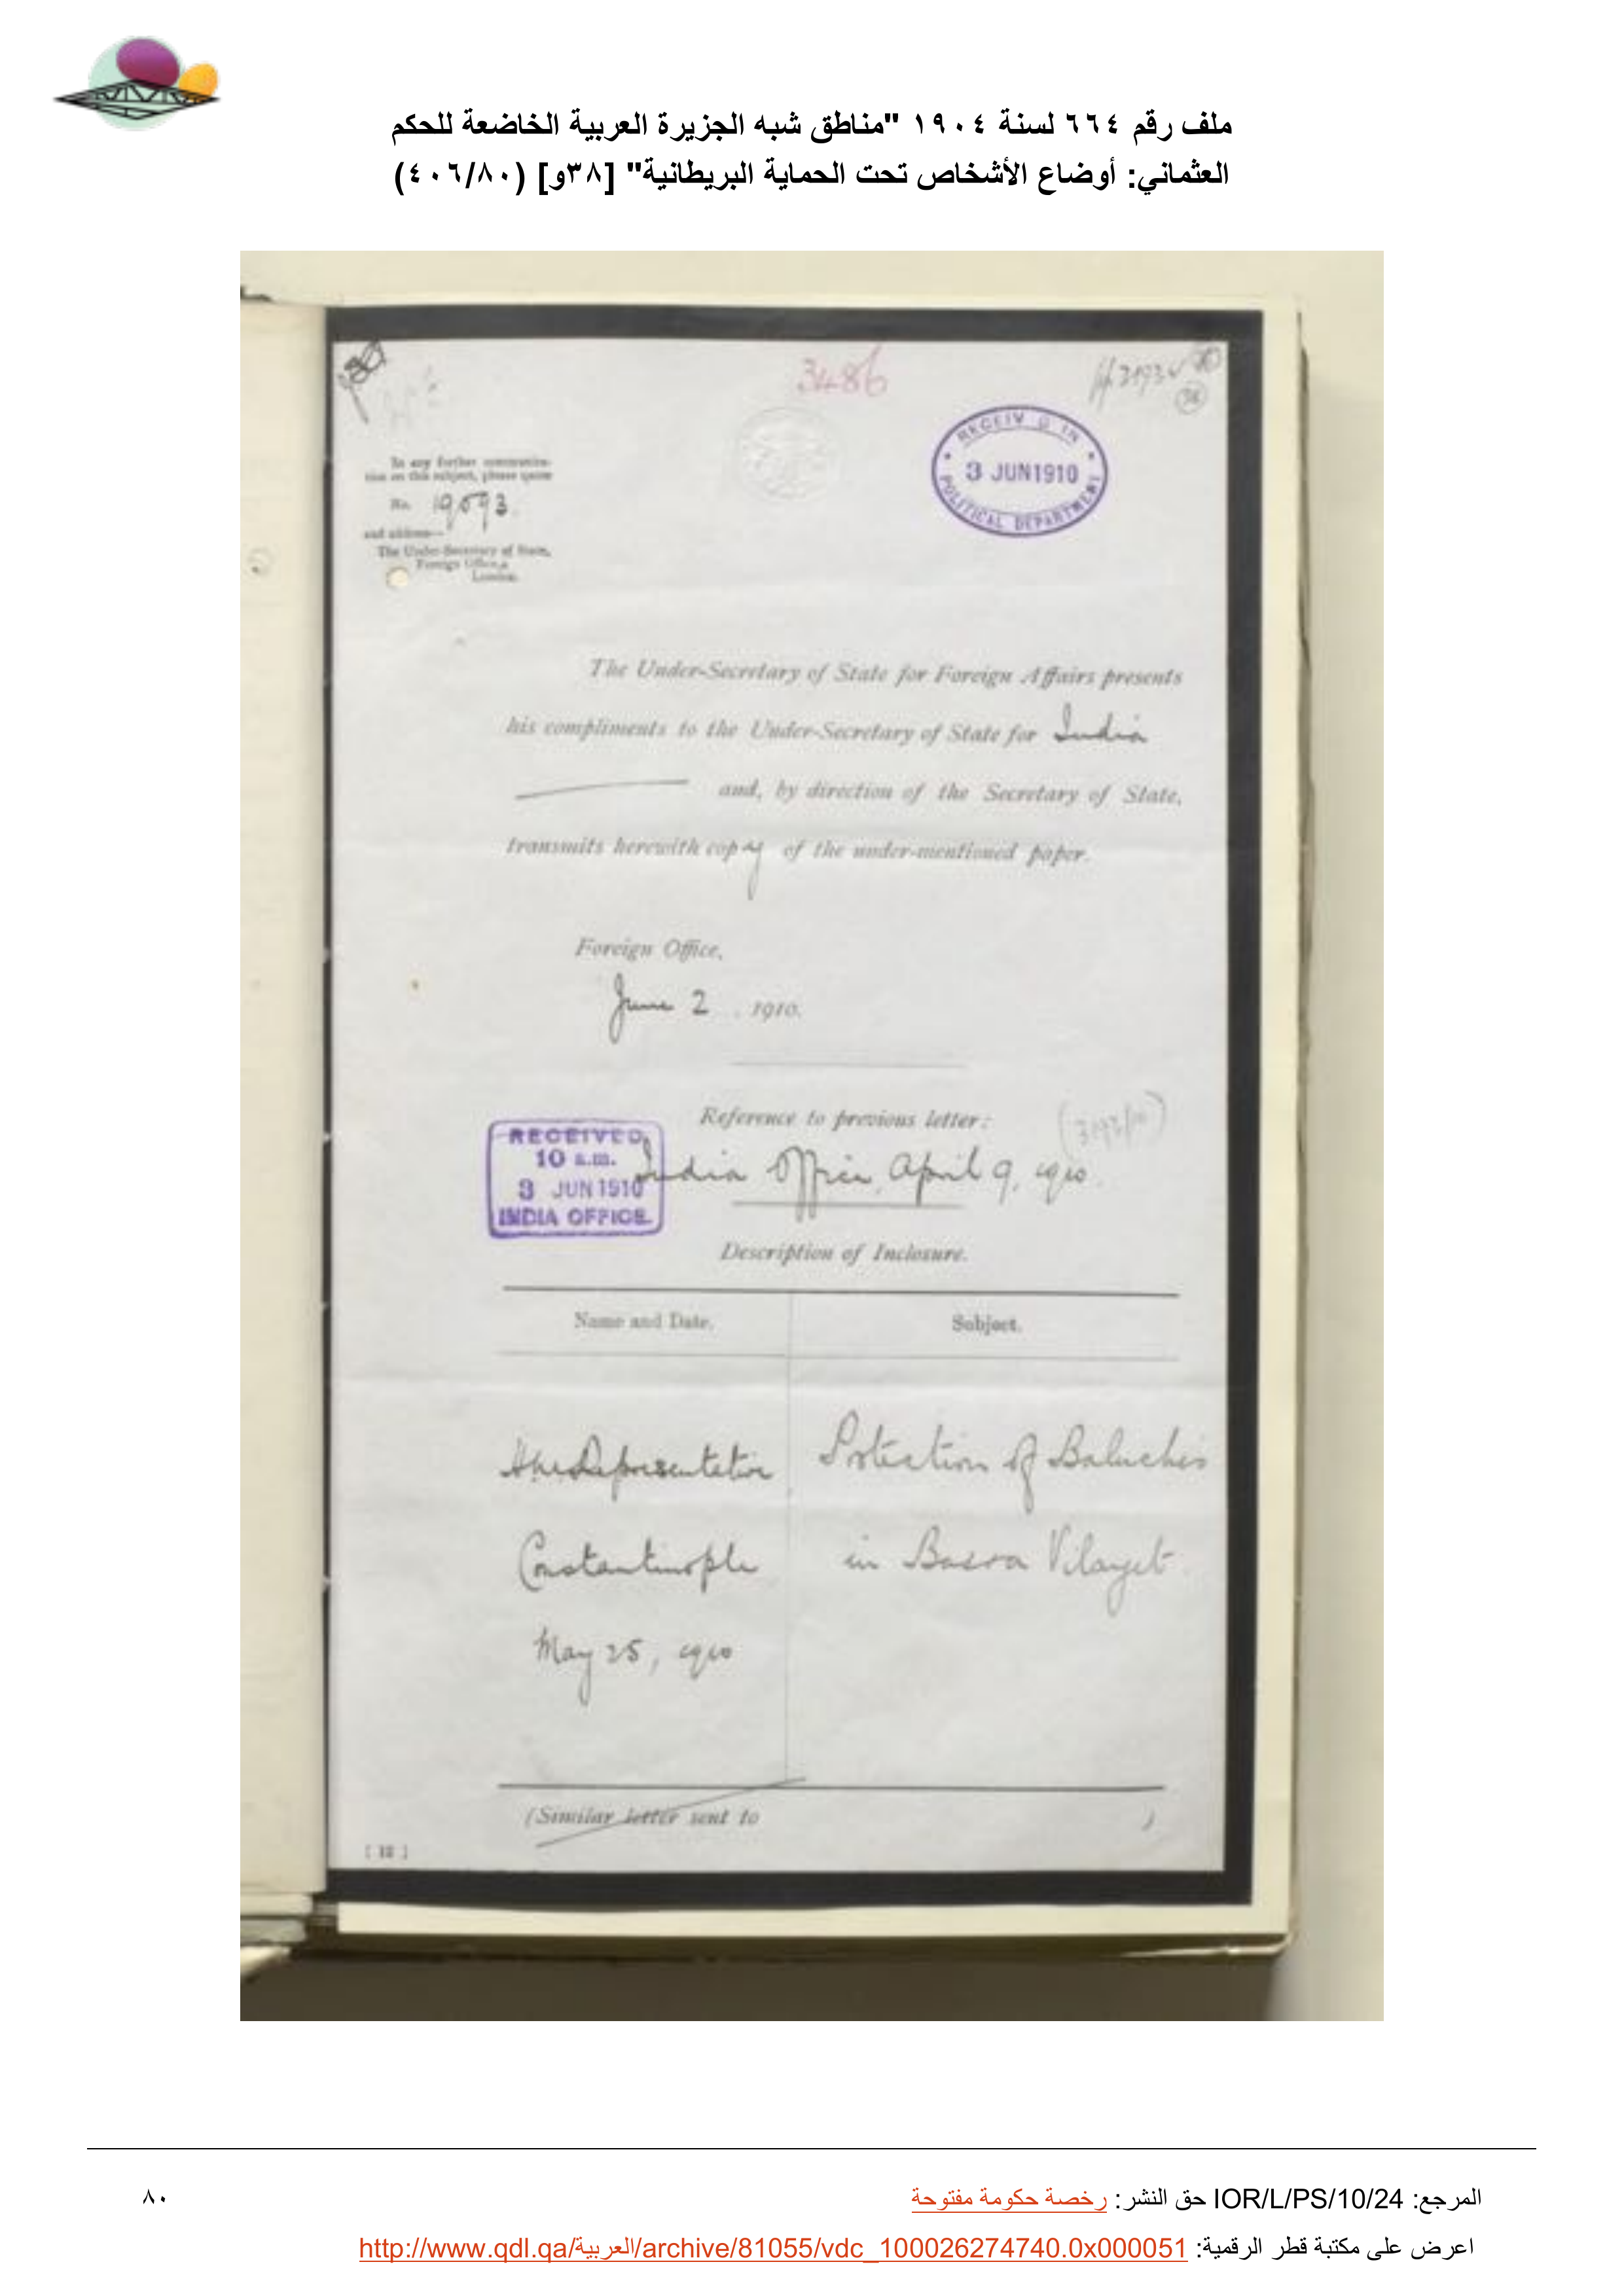 ملف رقم ٦٦٤ لسنة ١٩٠٤ "مناطق شبه الجزيرة العربية الخاضعة للحكم
العثماني: أوضاع الأشخاص تحت الحماية البريطانية" [٣٨و] (٤٠٦/٨٠)
3486
RECEIV D IN
3 JUN 1910
POLITICAL DEPARTMENT
In any further communica-
tion on this subject, please quote
No.
and address—
The Under-Secretary of State,
Foreign Office,
London.
The Under-Secretary of State for Foreign Affairs presents
his compliments to the Under-Secretary of State for India
and, by direction of the Secretary of State,
transmits herewith copy of the under-mentioned paper.
Foreign Office,
June 2 . 1910.
Reference to previous letter:
RECEIVED
10 a.m.
3 JUN 1910
INDIA OFFICE.
India Office, April 9, 1910.
Description of Inclosure.
Name and Date.
Subject.
Representative
Constantinople
May 25, 1910
Protection of Baluchis
in Basra Vilayet
(Similar letter sent to )
المرجع: IOR/L/PS/10/24 حق النشر: رخصة حكومة مفتوحة
٨٠
اعرض على مكتبة قطر الرقمية: http://www.qdl.qa/العربية/archive/81055/vdc_100026274740.0x000051